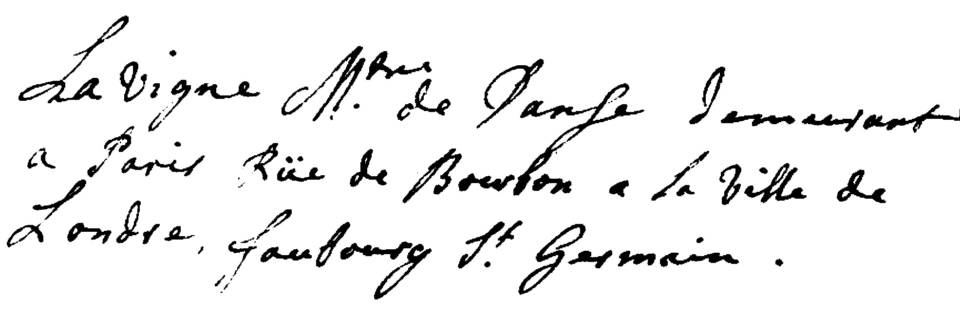 La Vigne M.tre de Danse demeurant
a Paris Rüe de Bourbon a la Ville de
Londre, faubourg S.t Germain.